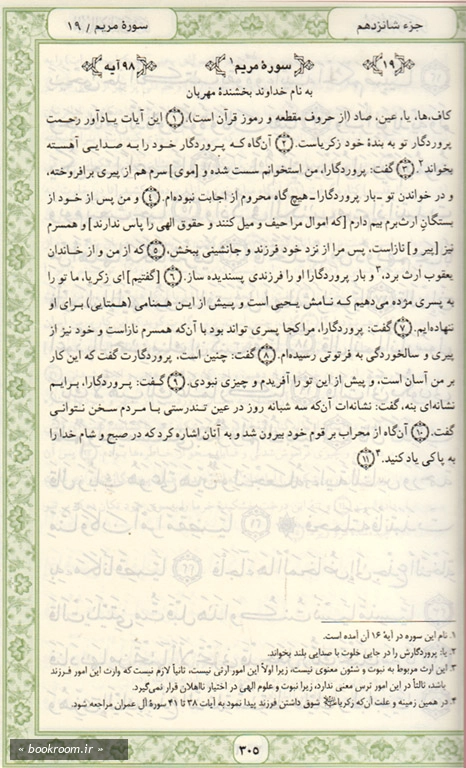 جزء شانزدهم
سورهٔ مریم / ۱۹
۱۹
سورهٔ مریم۱
۹۸ آیه
به نام خداوند بخشندهٔ مهربان
کاف، ها، یا، عین، صاد (از حروف مقطعه و رموز قرآن است).(۱) این آیات یادآور رحمت
پروردگار تو به بندهٔ خود زکریاست.(۲) آن‌گاه که پروردگار خود را به صدایی آهسته
بخواند۲.(۳) گفت: پروردگارا، من استخوانم سست شده و [موی] سرم هم از پیری برافروخته،
و در خواندن تو ـ بار پروردگارا ـ هیچ گاه محروم از اجابت نبوده‌ام.(۴) و من پس از خود از
بستگانِ ارث‌برم بیم دارم [که اموال مرا حیف و میل کنند و حقوق الهی را پاس ندارند] و همسرم
نیز [پیر و] نازاست، پس مرا از نزد خود فرزند و جانشینی ببخش،(۵) که از من و از خاندان
یعقوب ارث برد،۳ و بار پروردگارا او را فرزندی پسندیده ساز.(۶) [گفتیم] ای زکریا، ما تو را
به پسری مژده می‌دهیم که نامش یحیی است و پیش از این هم‌نامی (همتایی) برای او
ننهاده‌ایم.(۷) گفت: پروردگارا، مرا کجا پسری تواند بود با آن‌که همسرم نازاست و خود نیز از
پیری و سالخوردگی به فرتوتی رسیده‌ام.(۸) گفت: چنین است، پروردگارت گفت که این کار
بر من آسان است، و پیش از این تو را آفریدم و چیزی نبودی.(۹) گفت: پروردگارا، برایم
نشانه‌ای بنه، گفت: نشانه‌ات آن‌که سه شبانه روز در عین تندرستی با مردم سخن نتوانی
گفت.(۱۰) آن‌گاه از محراب بر قوم خود بیرون شد و به آنان اشاره کرد که در صبح و شام خدا را
به پاکی یاد کنید.۴(۱۱)
۱. نام این سوره در آیهٔ ۱۶ آن آمده است.
۲. یا: پروردگارش را در جایی خلوت با صدایی بلند بخواند.
۳. این ارث مربوط به نبوت و شئون معنوی نیست، زیرا اولاً این امور ارثی نیست، ثانیاً لازم نیست که وارث این امور فرزند
باشد، ثالثاً در این امور ترس معنی ندارد، زیرا نبوت و علوم الهی در اختیار نااهلان قرار نمی‌گیرد.
۴. در همین زمینه و علت آن‌که زکریا شوق داشتن فرزند پیدا نمود به آیات ۳۸ تا ۴۱ سورهٔ آل عمران مراجعه شود.
۳۰۵
« bookroom.ir »